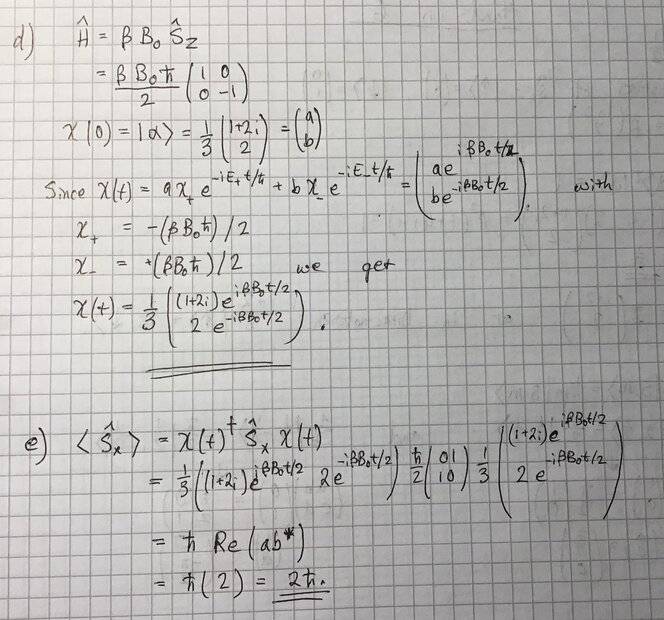 d) Ĥ = β B₀ Ŝ_z
= β B₀ ħ / 2 (1 0; 0 -1)
χ(0) = |α⟩ = 1/3 (1+2i; 2) = (a; b)
Since χ(t) = a χ₊ e^{-iE₊t/ħ} + b χ₋ e^{-iE₋t/ħ} = (a e^{iβB₀t/2}; b e^{-iβB₀t/2}). with
χ₊ = -(βB₀ħ)/2
χ₋ = +(βB₀ħ)/2 we get
χ(t) = 1/3 ((1+2i) e^{iβB₀t/2}; 2 e^{-iβB₀t/2});
e) ⟨Ŝ_x⟩ = χ(t)† Ŝ_x χ(t)
= 1/3 ((1+2i) e^{iβB₀t/2} 2e^{-iβB₀t/2}) ħ/2 (0 1; 1 0) 1/3 ((1+2i) e^{iβB₀t/2}; 2 e^{-iβB₀t/2})
= ħ Re(ab*)
= ħ(2) = 2ħ.